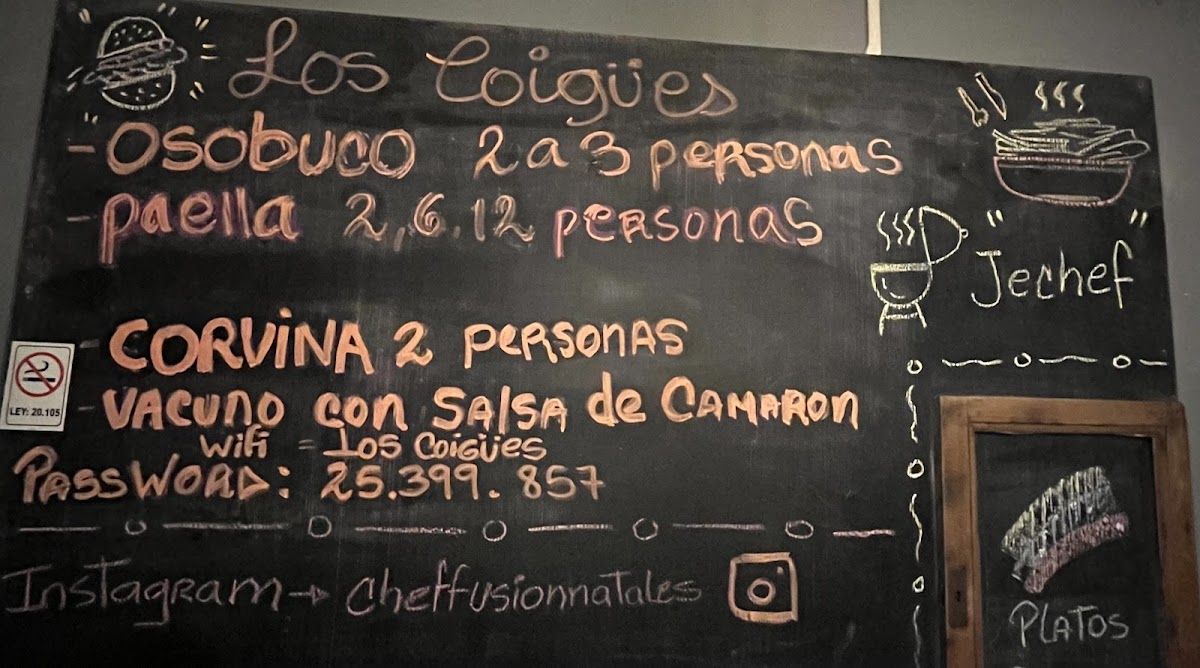 Los Coigües
- OSOBUCO 2 a 3 personas
- paella 2,6.12 personas
- CORVINA 2 personas
- VACUNO con SALSA de CAMARON
Wifi = Los Coigües
PASSWORD: 25.399.857
Instagram → Cheffusionnatales
"Jechef"
PLATOS
LEY: 20.105